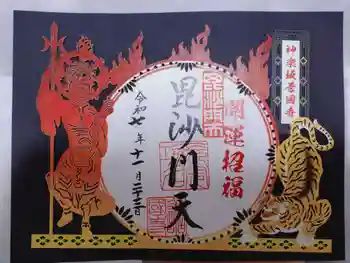 神楽坂善国寺
開運招福
毘沙門天
令和七年十一月二十三日